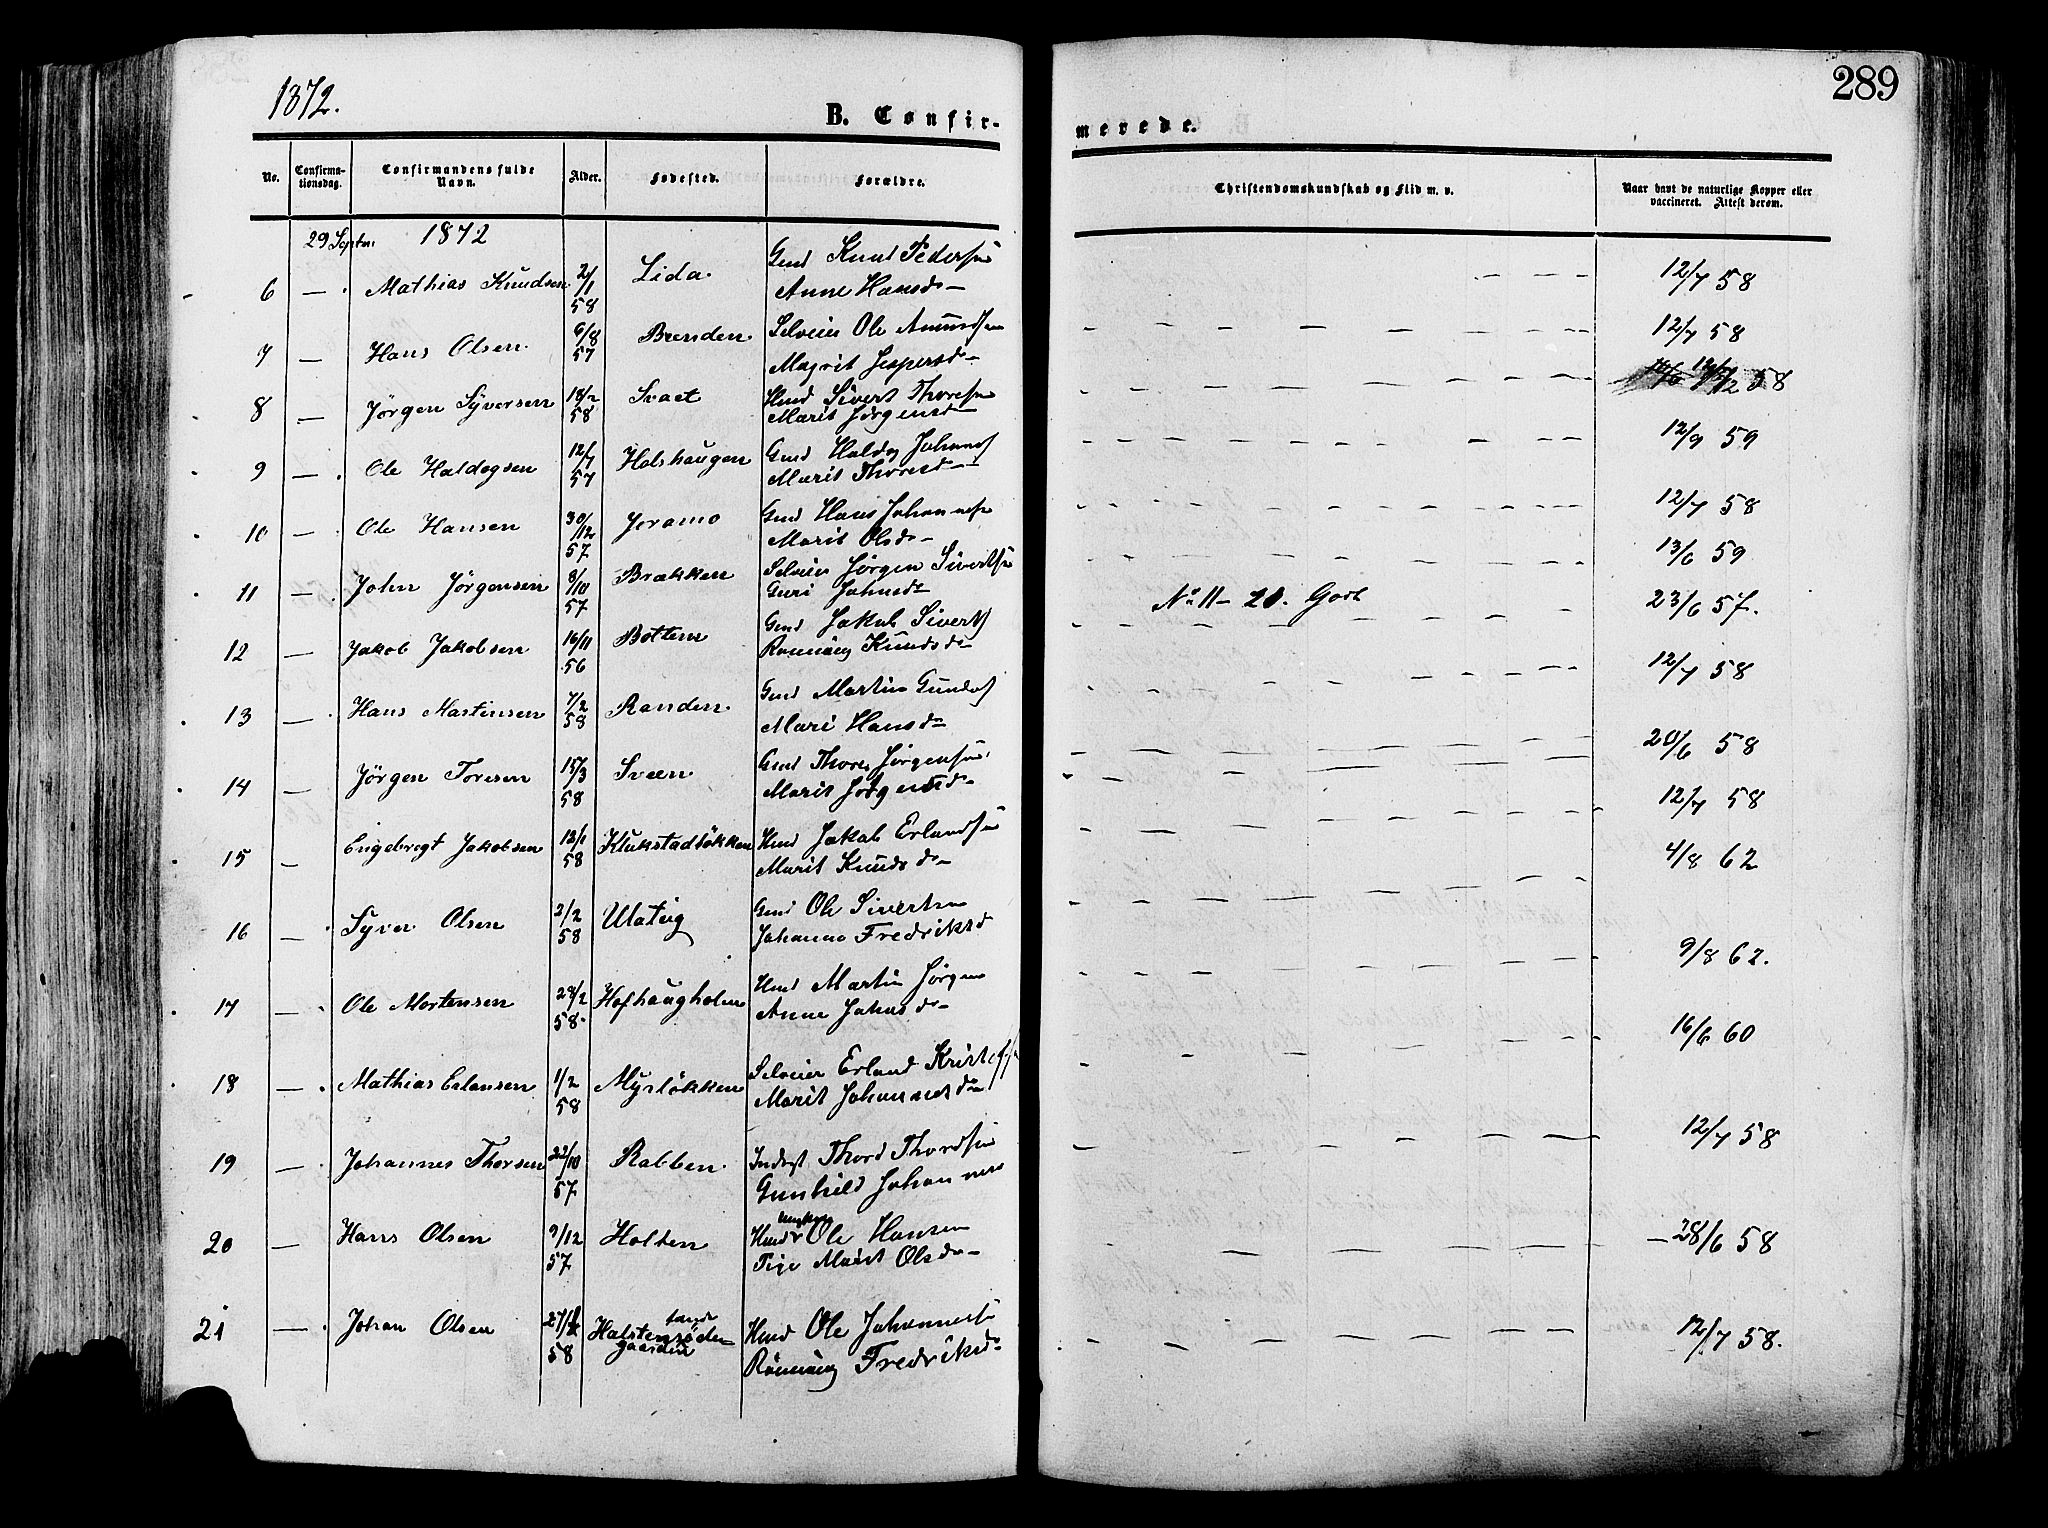 1872.
289
B. Confir-
merede.
No.
Confirma-
tionsdag.
Confirmandens fulde
Navn.
Alder.
Fødested.
Forældre.
Christendomskundskab og Flid m. v.
Naar havt de naturlige Kopper eller
vaccineret. Attest derom.
29 Septbr. 1872
6 — Mathias Knudsen 2/1 58 Lida. Gmd Knud Pedersen
Anne Hansd 12/7 58
7 — Hans Olsen 6/8 57 Brenden Selveier Ole Amundsen
Magrit Jespersd 12/7 58
8 — Jörgen Syversen 18/2 58 Svaet Hmd Sivert Thoresen
Marit Jørgensd 58
9 — Ole Haldogsen 12/7 57 Holshaugen Gmd Haldog Johans
Marit Thoresd 12/9 59
10 — Ole Hansen 30/12 57 Joramo Gmd Hans Johannes
Marit Olsd 12/7 58
11 — John Jörgensen 8/10 57 Brækken Selveier Jørgen Sivertsen
Guri Johnsd 13/6 59
No 11 - 20. Godt
12 — Jakob Jakobsen 16/11 56 Botten Gmd Jakob Siverts
Rønnaug Knudsd 23/6 57.
13 — Hans Martinsen 7/2 58 Randen Gmd Martin
Mari Hansd 12/7 58
14 — Jörgen Toresen 15/3 58 Sveen Gmd Thores Jörgensen
Marit Jørgensd 20/6 58
15 — Engebregt Jakobsen 13/1 58 Klukstadlökken Hmd Jakob Erlandsen
Marit Knudsd 12/7 58
16 — Syver Olsen 2/2 58 Ulatig Gmd Ole Sivertsen
Johanne Fredriksd 4/8 62
17 — Ole Mortensen 28/2 58. Hofhaugholm Hmd Martin Jörgen
Anne Johnsd 9/8 62.
18 — Mathias Erlansen 1/2 58 Myrlökken Selveier Erland Kristoffsen
Marit Johannesd 16/6 60
19 — Johannes Thorsen 22/10 57 Rabben Inderst Thord Thordsen
Gunhild Johannes 12/7 58
20 — Hans Olsen 9/12 57 Holten Ungkarl Ole Hansen
Pige Marit Olsd 28/6 58
21 — Johan Olsen 58 Hmd Ole Johannesen
Rönnaug Fredriksd 12/7 58.